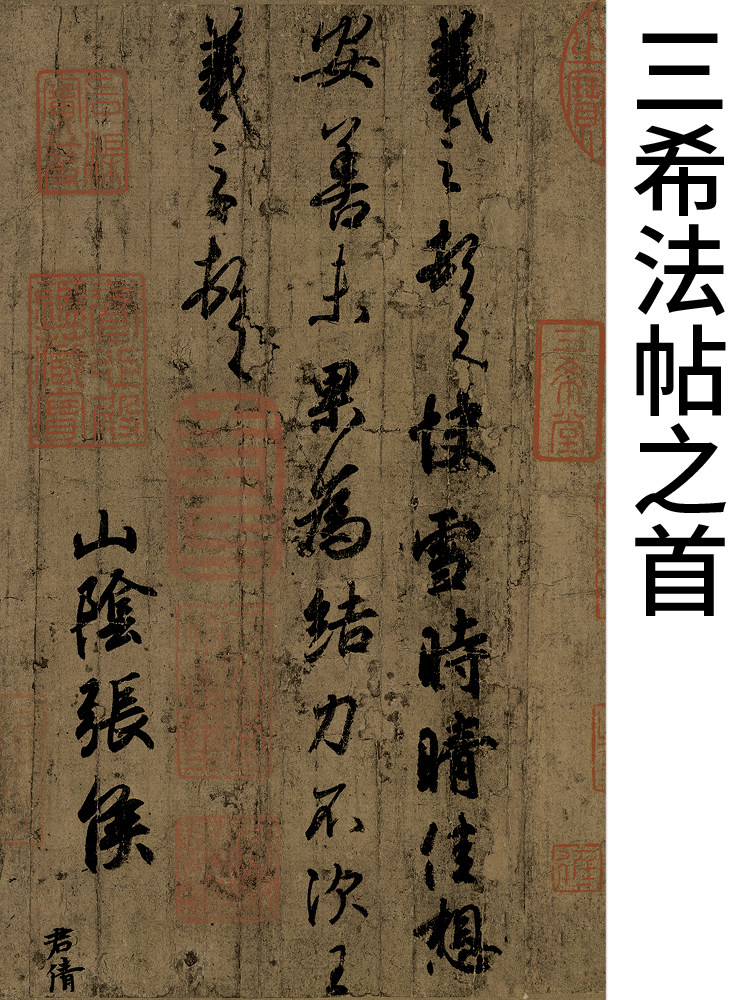 三希法帖之首
三希堂
羲之頓首快雪時晴佳想
安善未果為結力不次王
羲之頓首
山陰張侯
君倩